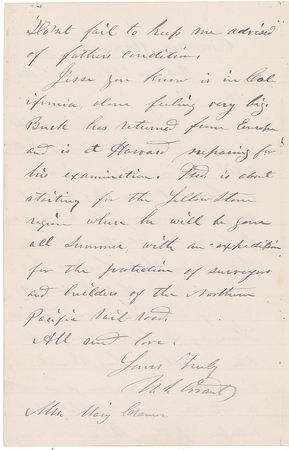 Don't fail to keep me advised
of fathers condition.
Jesse you know is in Cal
ifornia, alone feeling very big.
Buck has returned from Europe
and is at Harvard preparing for
his examination. Fred is about
starting for the Yellow Stone
region where he will be gone
all Summer, with an expedition
for the protection of surveyors
and builders of the Northern
Pacific rail road.
All send love.
Yours Truly
U. S. Grant
Mrs. Mary Cramer